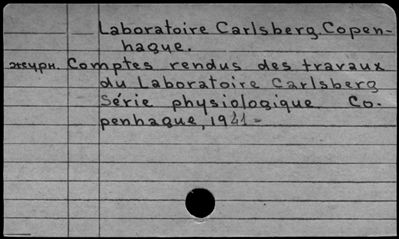 Laboratoire Carlsberg. Copen-
hague.
журн. Comptes rendus des travaux
du Laboratoire Carlsberg
Série physiologique Co-
penhague, 1941-